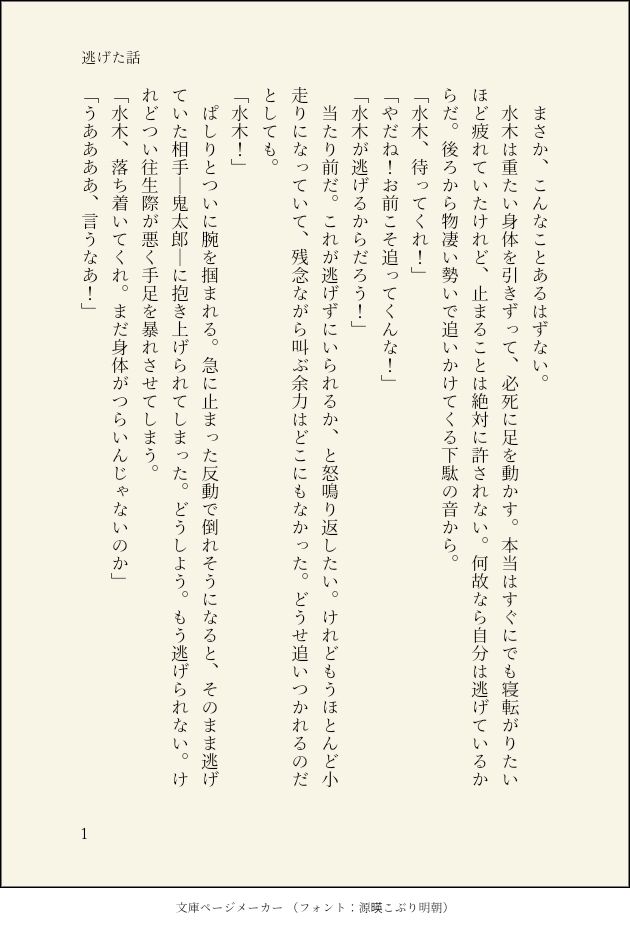 逃げた話
　まさか、こんなことあるはずない。
　水木は重たい身体を引きずって、必死に足を動かす。本当はすぐにでも寝転がりたい
ほど疲れていたけれど、止まることは絶対に許されない。何故なら自分は逃げているか
らだ。後ろから物凄い勢いで追いかけてくる下駄の音から。
「水木、待ってくれ！」
「やだね！お前こそ追ってくんな！」
「水木が逃げるからだろう！」
　当たり前だ。これが逃げずにいられるか、と怒鳴り返したい。けれどもうほとんど小
走りになっていて、残念ながら叫ぶ余力はどこにもなかった。どうせ追いつかれるのだ
としても。
「水木！」
　ぱしりとついに腕を掴まれる。急に止まった反動で倒れそうになると、そのまま逃げ
ていた相手―鬼太郎―に抱き上げられてしまった。どうしよう。もう逃げられない。け
れどつい往生際が悪く手足を暴れさせてしまう。
「水木、落ち着いてくれ。まだ身体がつらいんじゃないのか」
「うああああ、言うなあ！」
1
文庫ページメーカー（フォント：源暎こぶり明朝）